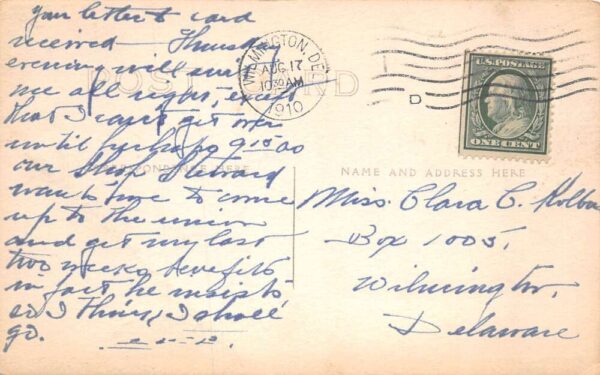 your letter & card
received — Thursday
evening will suit
me all right, except
that I can't get over
until perhaps 9:15 as
our Shop Steward
wants me to come
up to the union
and get my last
two weeks benefits
in fact he insists
so I think I shall
go.
POST CARD
CORRESPONDENCE HERE
NAME AND ADDRESS HERE
WILMINGTON, DEL.
AUG 17
10 30 AM
1910
D
U.S. POSTAGE
ONE CENT
Miss. Clara C.
Box 1005,
Wilmington,
Delaware